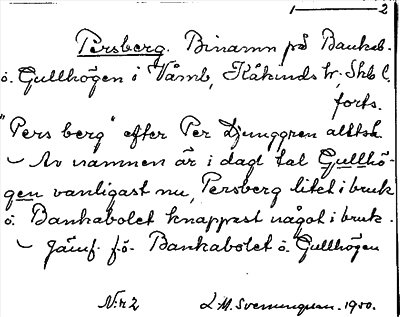 1 — 2
Persberg. Binamn på Bankab.
o. Gullhögen i Våmb, Kåkinds hr, Skb l.
forts.
"Pers berg" efter Per Djunggren alltså.
– Av namnen är i dagl tal Gullhö-
gen vanligast nu, Persberg litet i bruk
o. Bankabolet knappast något i bruk.
– Jämf. f.ö. Bankabolet o. Gullhögen
N:r 2 L. M. Svenungsson. 1950.